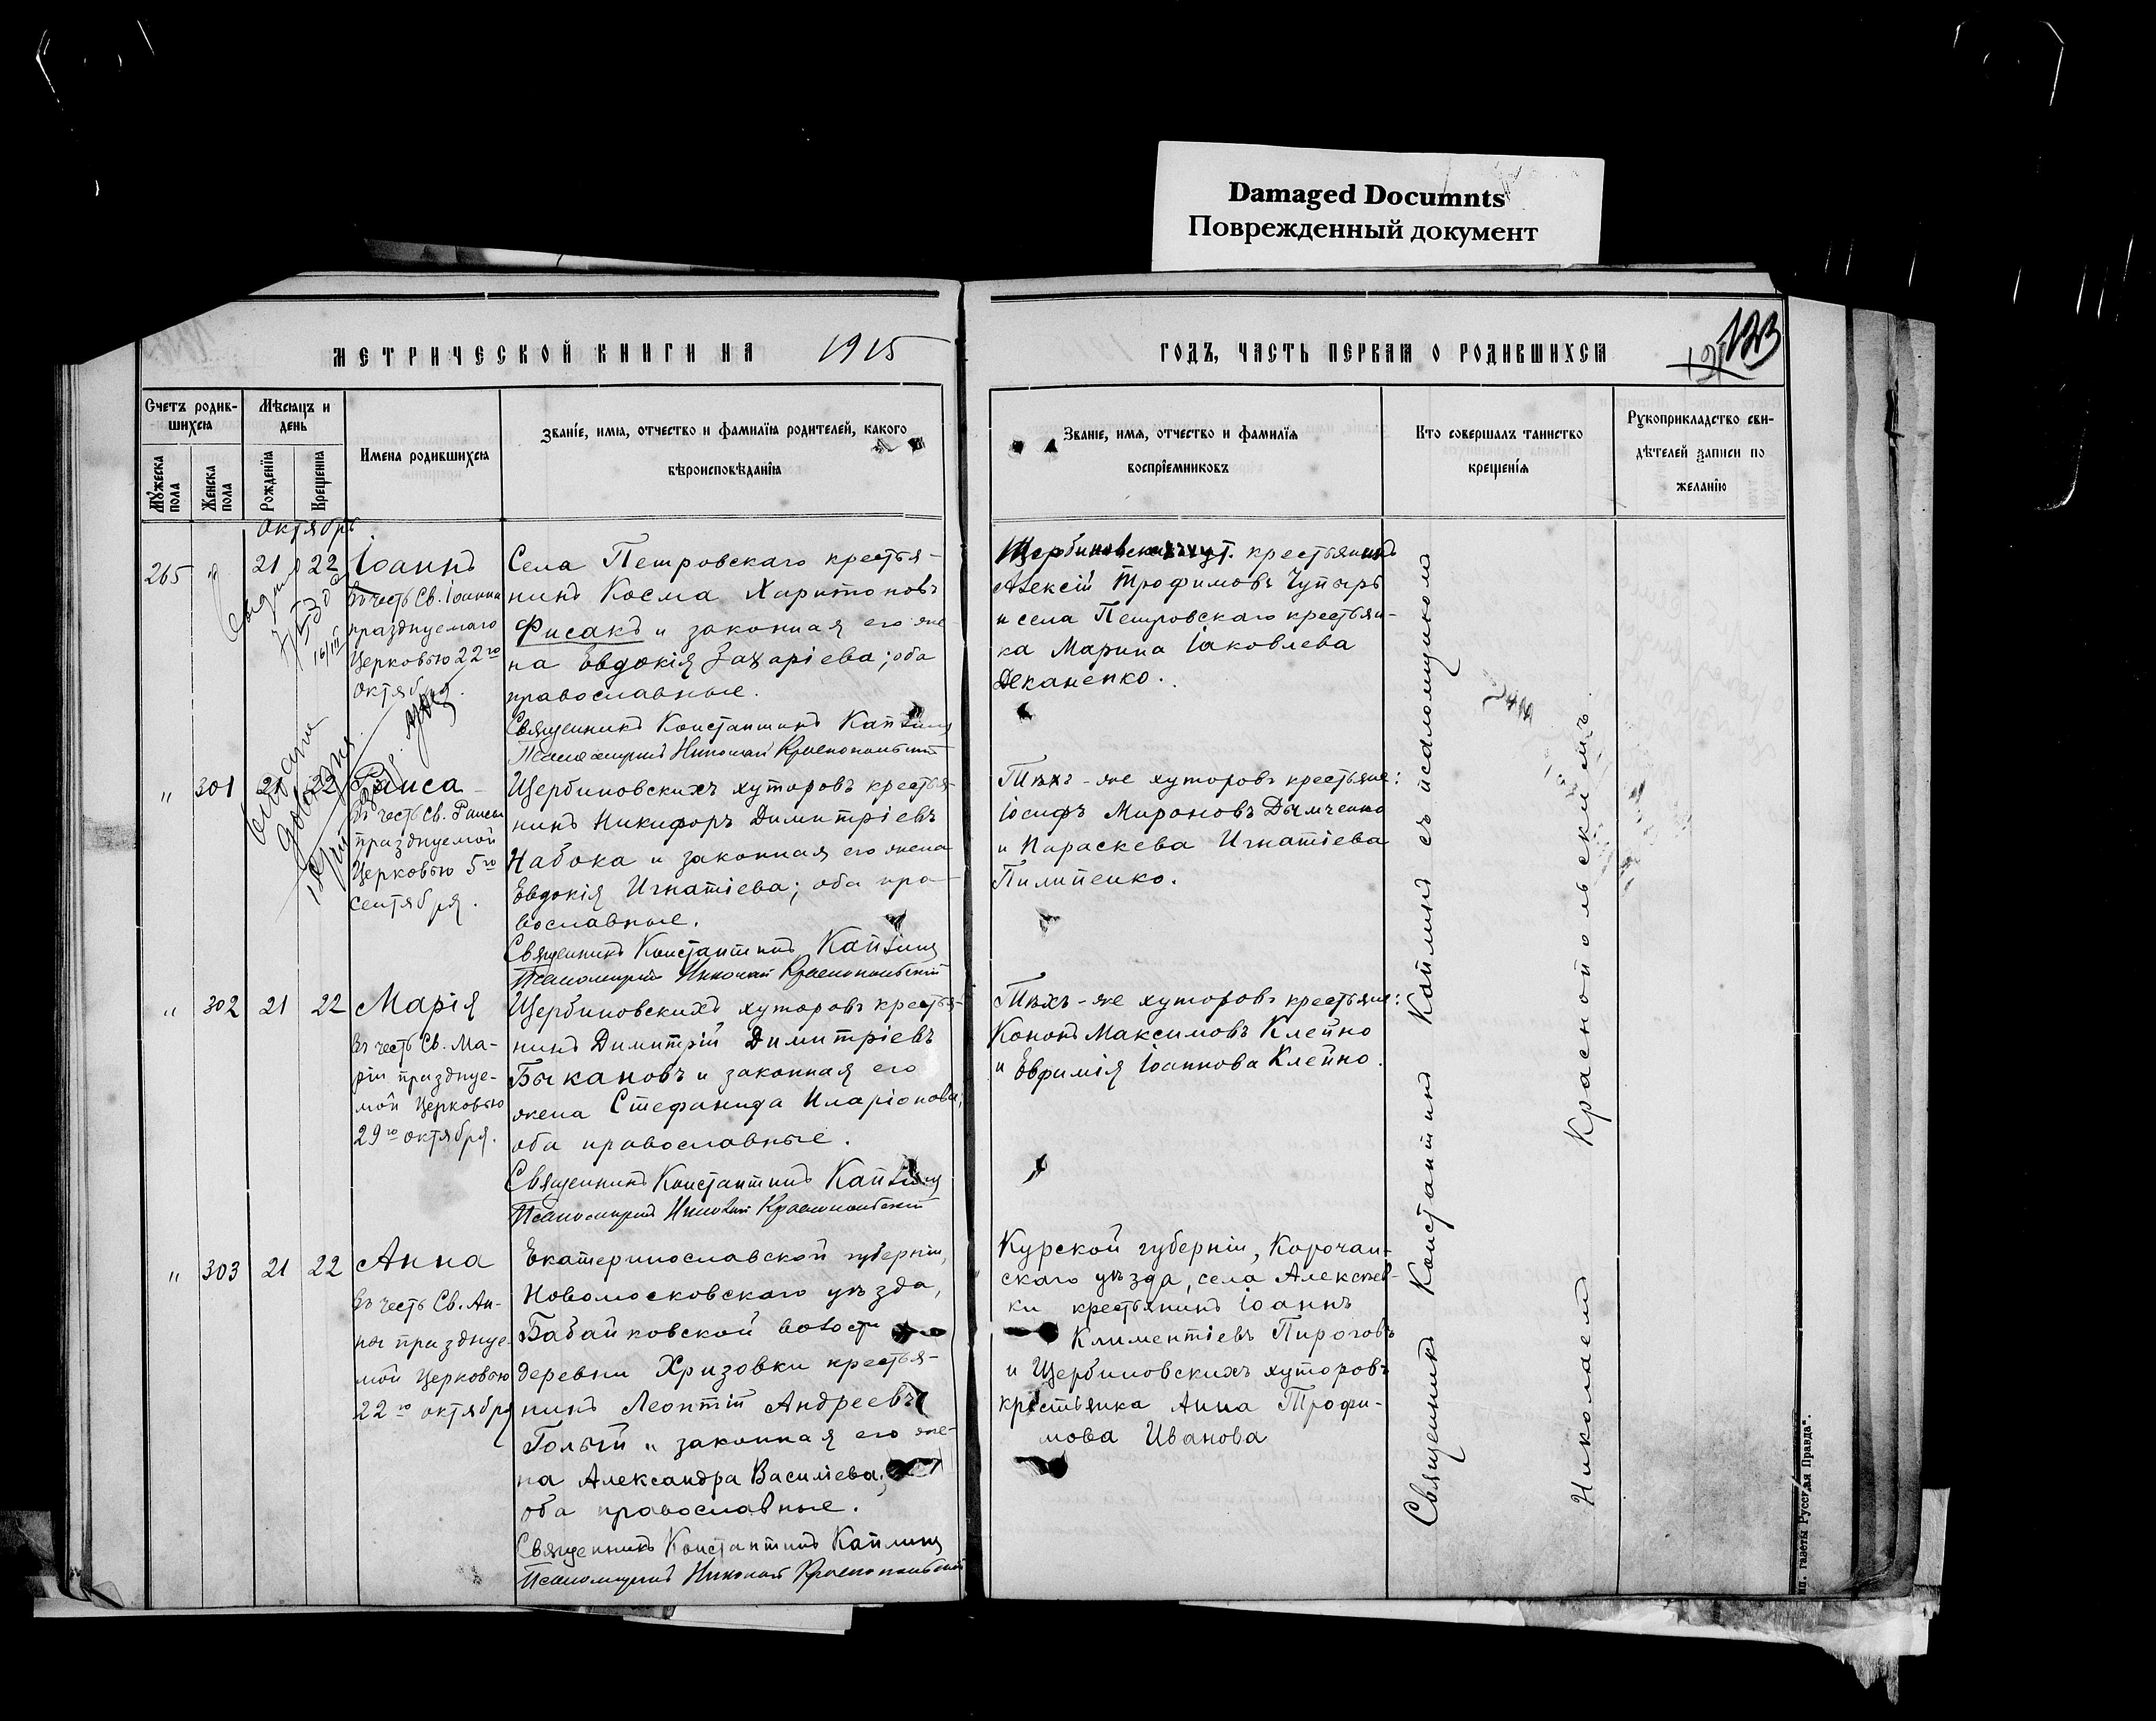 Damaged Documnts
Поврежденный документ
МЕТРИЧЕСКОЙ КНИГИ НА 1915
ГОДЪ, ЧАСТЬ ПЕРВАЯ О РОДИВШИХСЯ
123
Счетъ родив-
шихся
Мѣсяцъ и
день
Мужеска
пола
Женска
пола
Рожденія
Крещенія
Имена родившихся
Званіе, имя, отчество и фамилія родителей, какого
вѣроисповѣданія
Званіе, имя, отчество и фамилія
воспріемниковъ
Кто совершалъ таинство
крещенія
Рукоприкладство сви-
дѣтелей записи по
желанію
Октябрь
265 " 21 22
Іоаннъ
въ честь Св. Іоанна
празднуемаго
Церковью 22го
октября.
Села Петровскаго крестья-
нинъ Косма Харитоновъ
Фисакъ и законная его же-
на Евдокія Захаріева; оба
православные.
Священникъ Константинъ Каплинъ
Псаломщикъ Николай Краснопольскій
Щербиновских хут. крестьянинъ
Алексій Трофимовъ Чупырь
и села Петровскаго крестьян-
ка Марина Іаковлева
Деканенко.
" 301 21 22
Раиса
въ честь Св. Раисы
празднуемой
Церковью 5го
сентября.
Щербиновскихъ хуторовъ крестья-
нинъ Никифоръ Димитріевъ
Набока и законная его жена
Евдокія Игнатіева; оба пра-
вославные.
Священникъ Константинъ Каплинъ
Псаломщикъ Николай Краснопольскій
Тѣхъ-же хуторовъ крестьяне:
Іосифъ Мироновъ Дымченко
и Параскева Игнатіева
Пилипенко.
" 302 21 22
Марія
въ честь Св. Ма-
ріи празднуе-
мой Церковью
29го октября.
Щербиновскихъ хуторовъ крестья-
нинъ Димитрій Димитріевъ
Быкановъ и законная его
жена Стефанида Иларіонова;
оба православные.
Священникъ Константинъ Каплинъ
Псаломщикъ Николай Краснопольскій
Тѣхъ-же хуторовъ крестьяне:
Кононъ Максимовъ Клейно
и Евфимія Іоаннова Клейно.
" 303 21 22
Анна
въ честь Св. Ан-
ны празднуе-
мой Церковью
22го октября
Екатеринославской губерніи,
Новомосковскаго уѣзда,
Бабайковской волости
деревни Хризовки крестья-
нинъ Леонтій Андреевъ
Голый и законная его же-
на Александра Василіева;
оба православные.
Священникъ Константинъ Каплинъ
Псаломщикъ Николай Краснопольскій
Курской губерніи, Корочан-
скаго уѣзда, села Алексѣев-
ки крестьянинъ Іоаннъ
Климентіевъ Пироговъ
и Щербиновскихъ хуторовъ
крестьянка Анна Трофи-
мова Иванова
Священникъ Константинъ Каплинъ съ псаломщикомъ
Николаемъ Краснопольскимъ.
газеты Русская Правда".